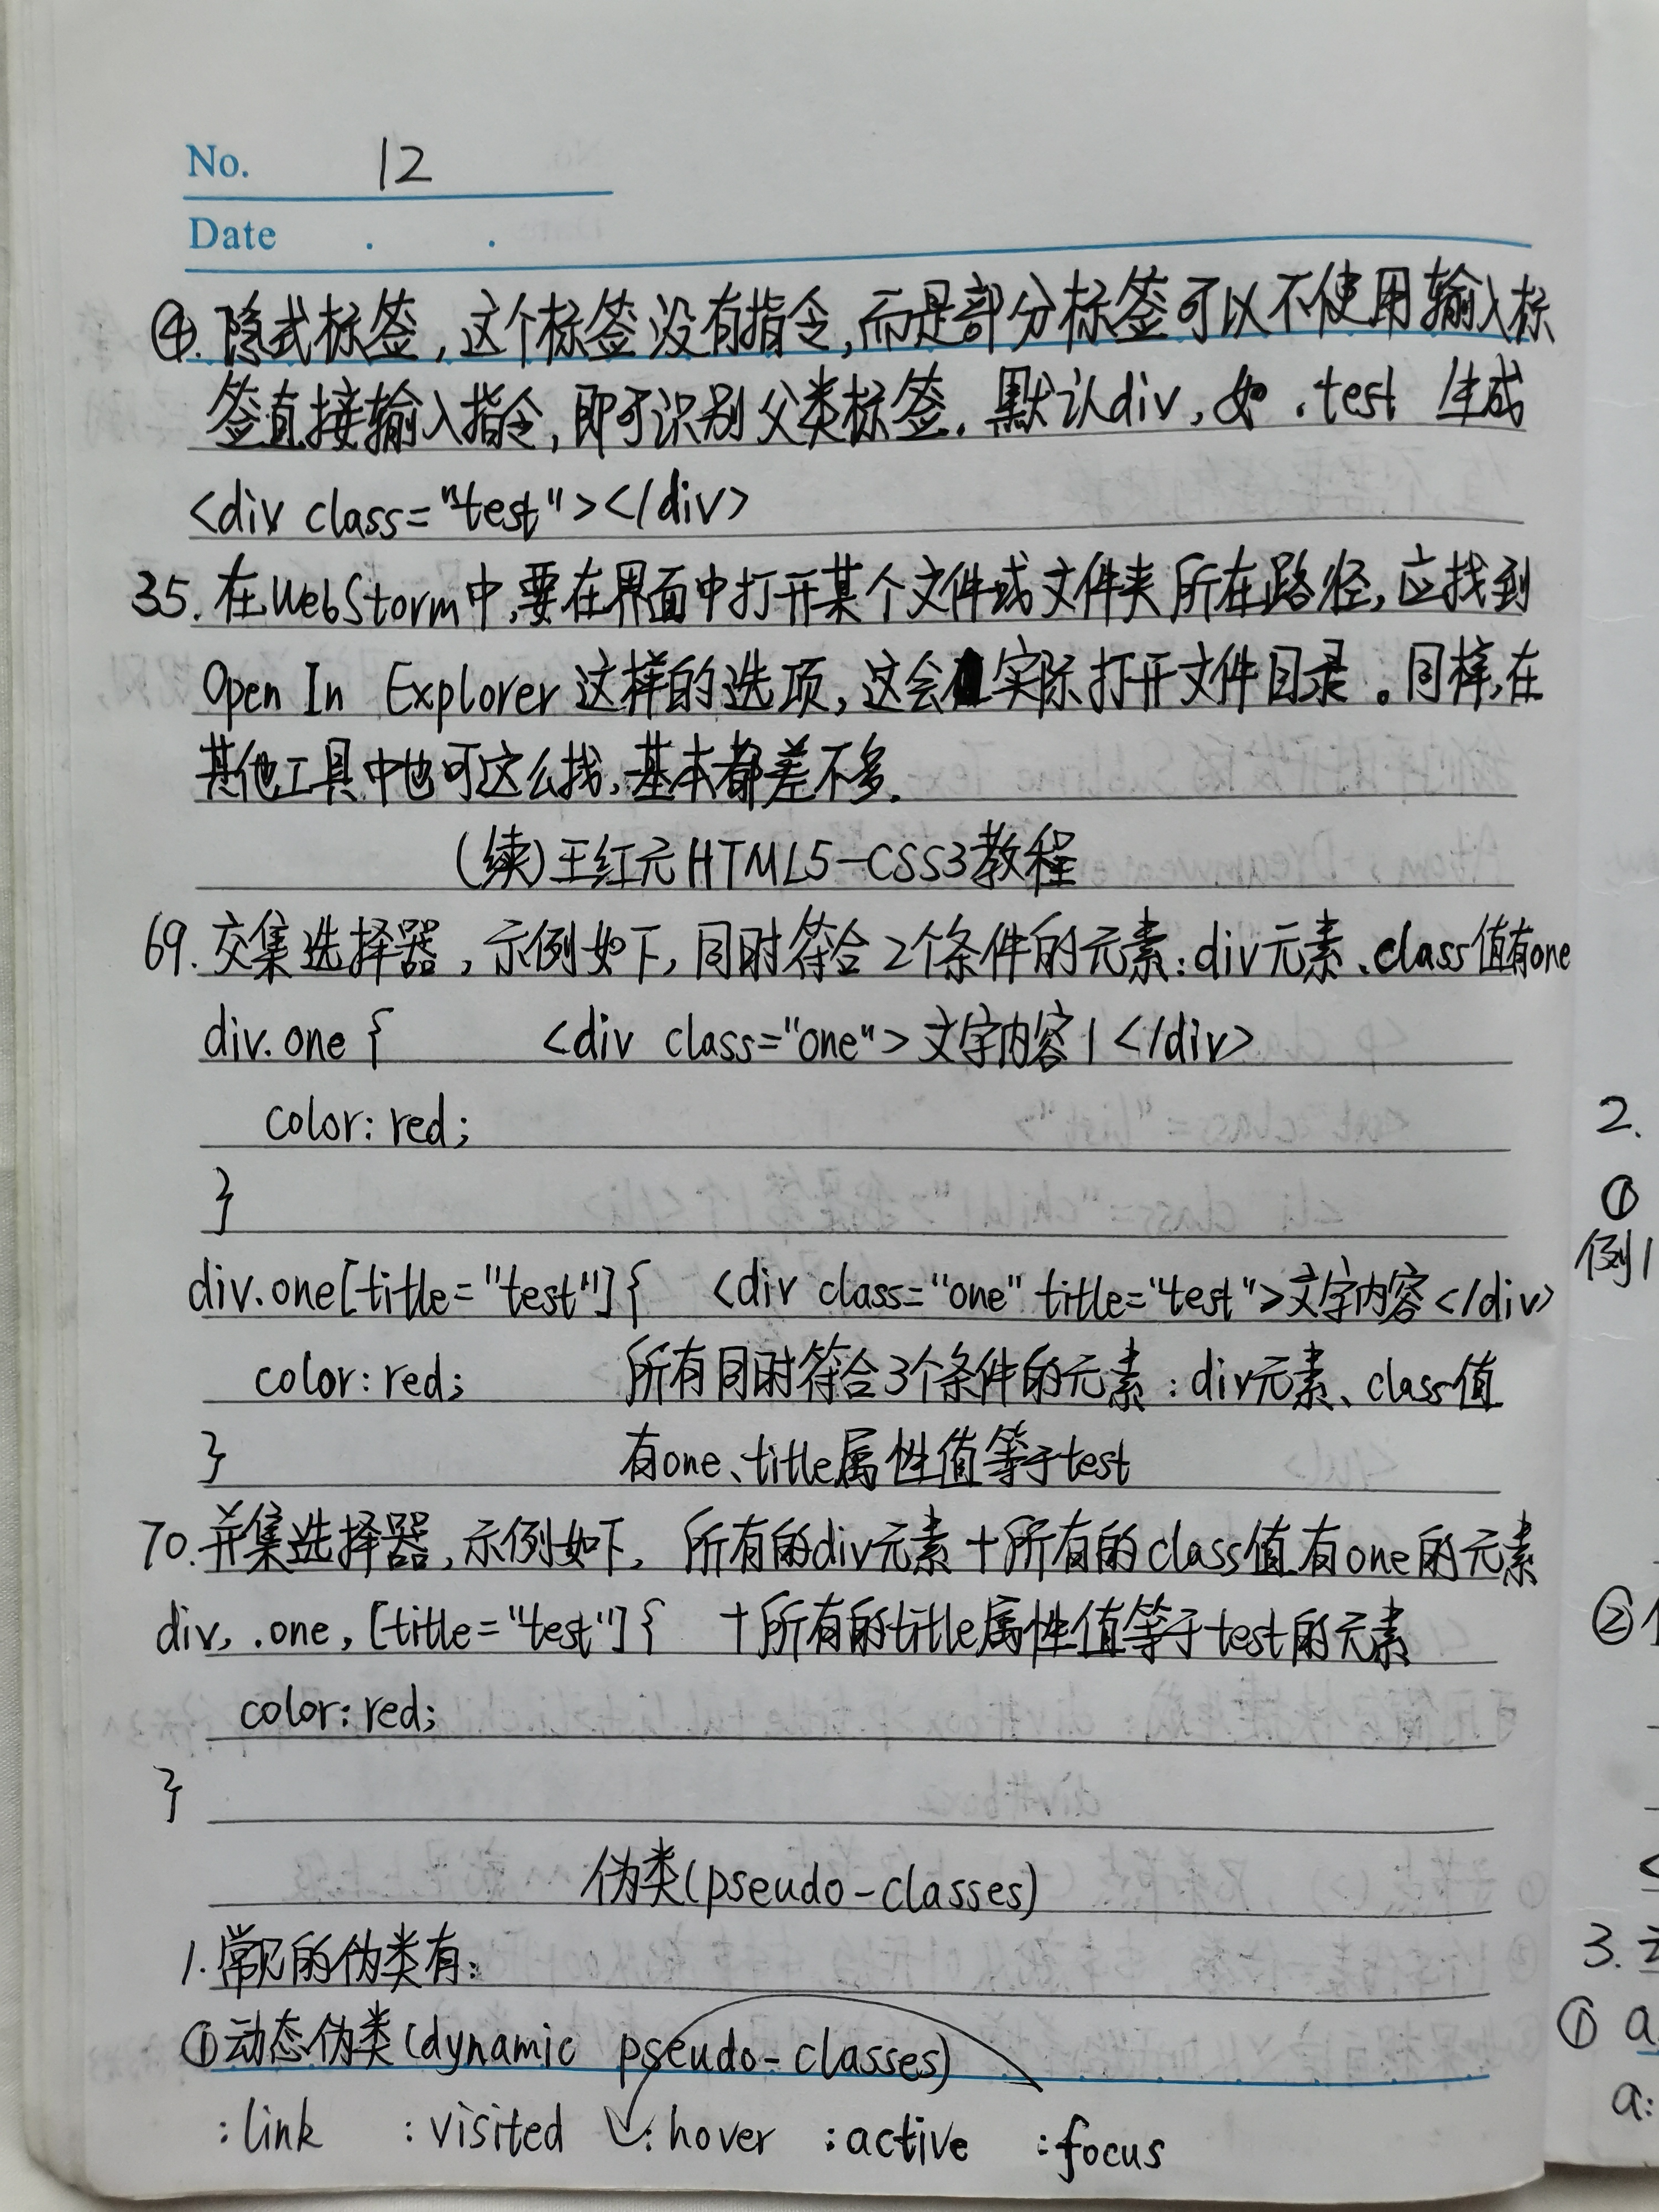 No. 12
Date . .
④. 隐式标签,这个标签没有指令,而是部分标签可以不使用输入标
签直接输入指令,即可识别父类标签. 默认div,如 .test 生成
<div class="test"></div>
35. 在WebStorm中,要在界面中打开某个文件或文件夹所在路径,应找到
Open In Explorer 这样的选项,这会实际打开文件目录。同样,在
其他工具中也可这么找,基本都差不多.
(续)王红元HTML5-CSS3教程
69. 交集选择器,示例如下,同时符合2个条件的元素:div元素、class值有one
div.one { <div class="one">文字内容1</div>
color: red;
}
div.one[title="test"]{ <div class="one" title="test">文字内容</div>
color: red; 所有同时符合3个条件的元素:div元素、class值
} 有one、title属性值等于test
70. 并集选择器,示例如下, 所有的div元素+所有的class值有one的元素
div, .one, [title="test"]{ +所有的title属性值等于test的元素
color: red;
}
伪类(pseudo-classes)
1. 常见的伪类有:
①动态伪类(dynamic pseudo-classes)
:link :visited :hover :active :focus
2.
①
例1
②
3.
① a
a: